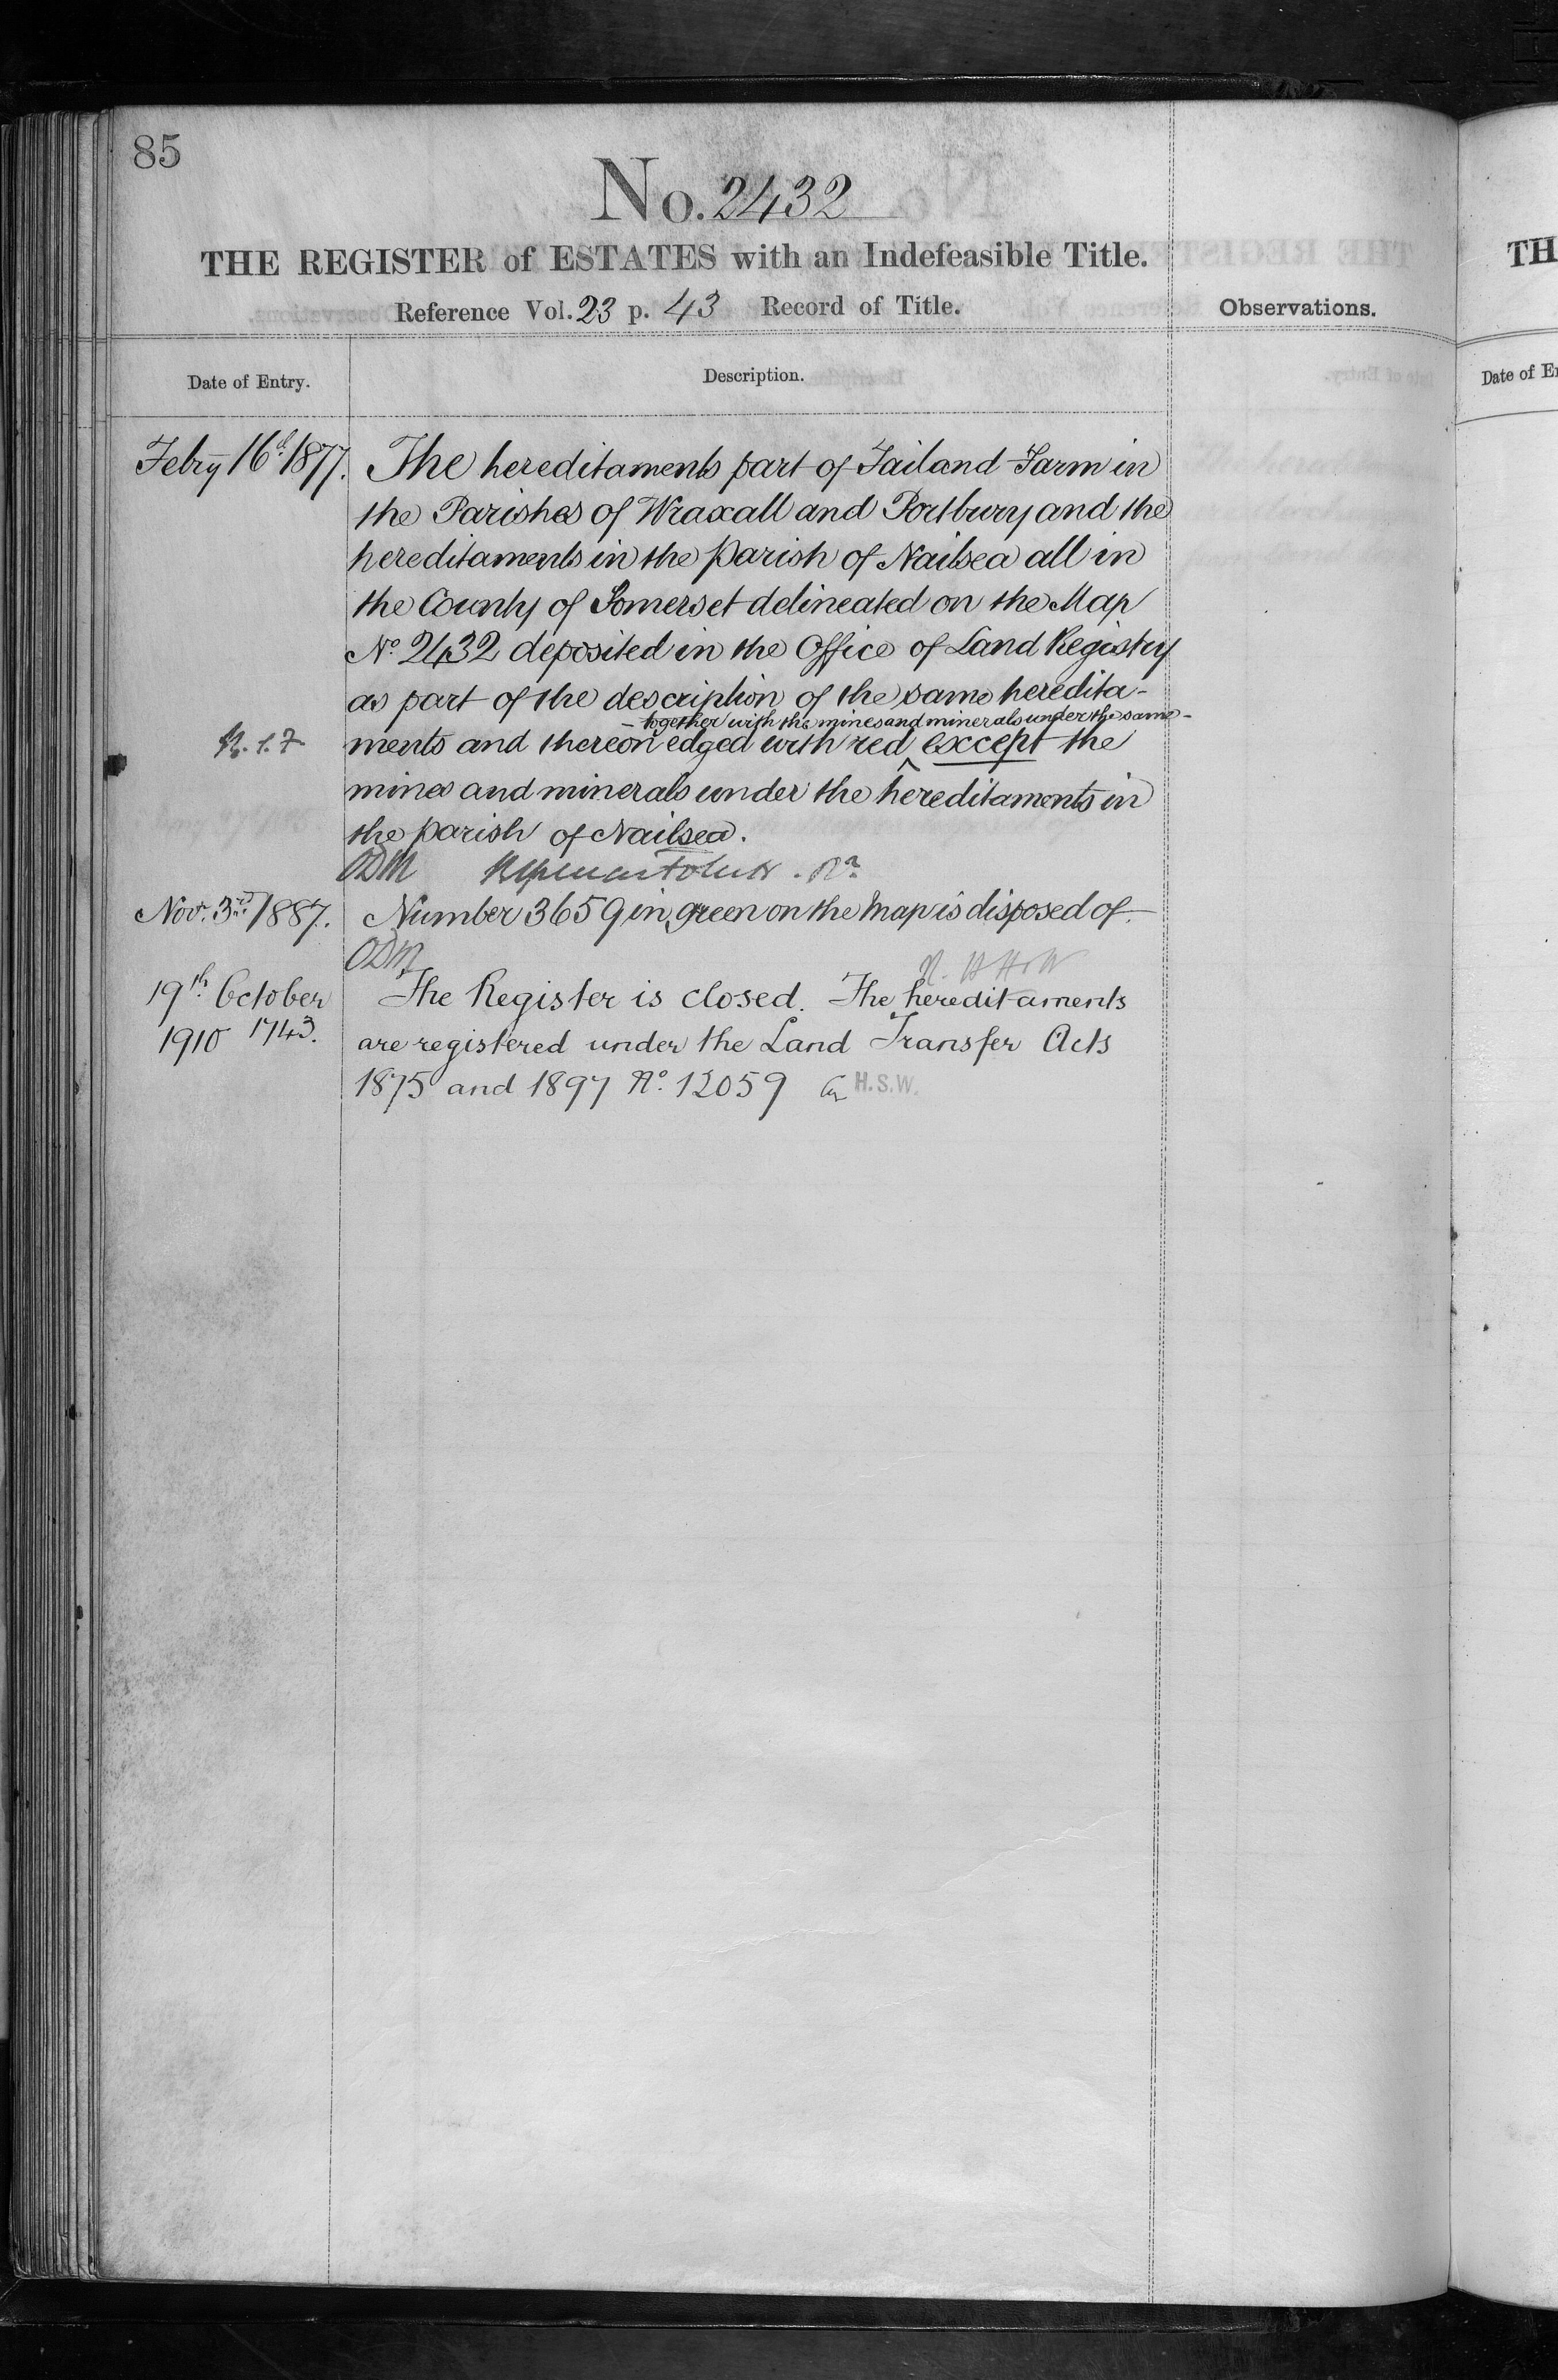 85
No. 2432
THE REGISTER of ESTATES with an Indefeasible Title.
Reference Vol. 23 p. 43 Record of Title.
Observations.
Date of Entry.
Description.
Febry 16th 1877. The hereditaments part of Failand Farm in
the Parishes of Wraxall and Portbury and the
hereditaments in the parish of Nailsea all in
the County of Somerset delineated on the Map
No. 2432 deposited in the Office of Land Registry
as part of the description of the same heredita-
- together with the mines and minerals under the same -
ments and thereon edged with red ^ except the
mines and minerals under the hereditaments in
the parish of Nailsea.
ODM
Nov. 3rd 1887. Number 3659 in green on the Map is disposed of.
ODM
19th October The Register is closed. The hereditaments
1910 1743. are registered under the Land Transfer Acts
1875 and 1897 No. 12059 H.S.W.
TH
Date of E